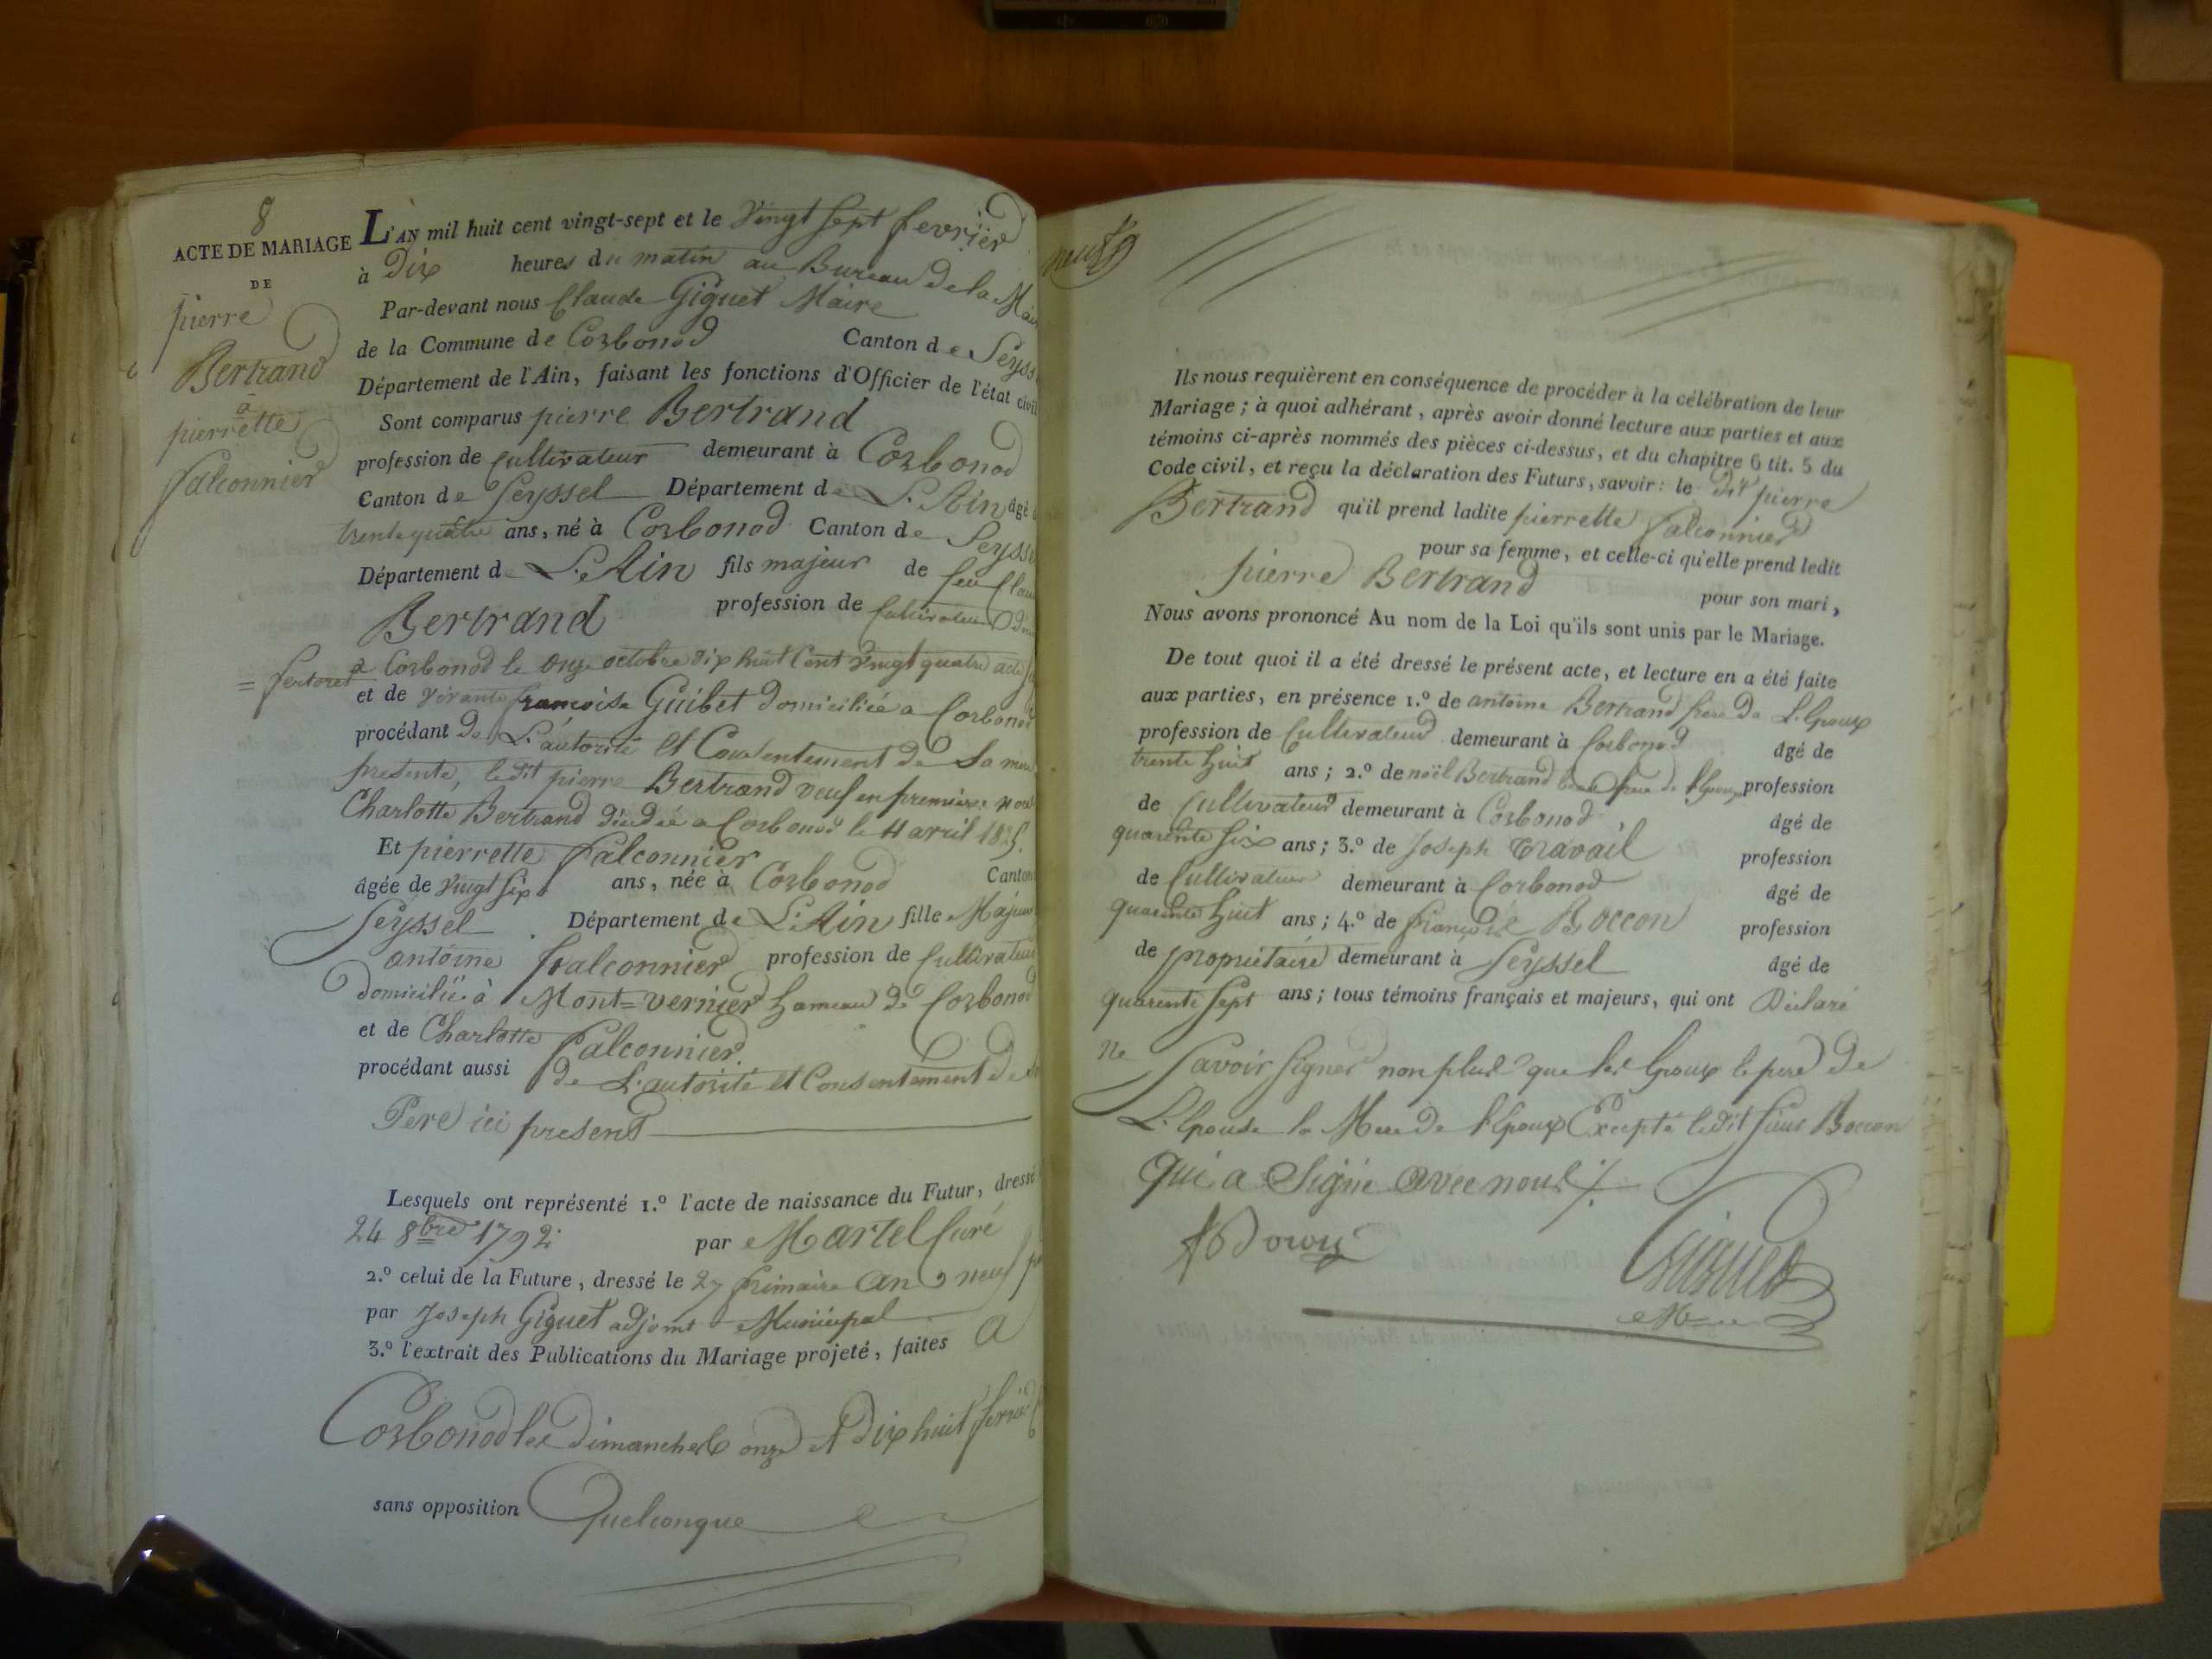 8
ACTE DE MARIAGE
DE
pierre
Bertrand
a
pierrette
falconnier
L'AN mil huit cent vingt-sept et le Vingt Sept fevrier
à Dix heures du matin au Bureau de la Mair
Par-devant nous Claude Giguet Maire
de la Commune de Corbonod Canton de Seyss
Département de l'Ain, faisant les fonctions d'Officier de l'état civil
Sont comparus pierre Bertrand
profession de Cultivateur demeurant à Corbonod
Canton de Seyssel Département de L'Ain âgé
trente quatre ans, né à Corbonod Canton de Seysse
Département de L'Ain fils majeur de feu Clau
Bertrand profession de Cultivateur
a Corbonod le onze octobre dix huit Cent Vingt quatre acte
et de vivante françoise Guibet domiciliée a Corbonod
procédant De L'autorité et Consentement de Sa mere
presente, ledit pierre Bertrand veuf en premiere
Charlotte Bertrand décédée a Corbonod le 11 avril
Et pierrette falconnier
âgée de vingt six ans, née à Corbonod Canton
Seyssel Département de L'Ain fille Majeur
antoine falconnier profession de Cultivateur
domicilié à Mont=vernier hameau de Corbonod
et de Charlotte falconnier
procédant aussi de L'autorité et Consentement de
Pere ici present
Lesquels ont représenté 1.º l'acte de naissance du Futur, dressé
24 8bre 1792 par Martel Curé
2.º celui de la Future, dressé le 27 frimaire an 9 neuf
par Joseph Giguet adjoint Municipal
3.º l'extrait des Publications du Mariage projeté, faites a
Corbonod les Dimanches onze et Dix huit
sans opposition Quelconque
neuf 9
Ils nous requièrent en conséquence de procéder à la célébration de leur
Mariage; à quoi adhérant, après avoir donné lecture aux parties et aux
témoins ci-après nommés des pièces ci-dessus, et du chapitre 6 tit. 5 du
Code civil, et reçu la déclaration des Futurs, savoir: le dit pierre
Bertrand qu'il prend ladite pierrette falconnier
pour sa femme, et celle-ci qu'elle prend ledit
pierre Bertrand pour son mari,
Nous avons prononcé Au nom de la Loi qu'ils sont unis par le Mariage.
De tout quoi il a été dressé le présent acte, et lecture en a été faite
aux parties, en présence 1.º de antoine Bertrand frere De L'Epoux
profession de Cultivateur demeurant à Corbonod âgé de
trente huit ans; 2.º de noël Bertrand beau frere de l'Epoux profession
de Cultivateur demeurant à Corbonod âgé de
quarente Six ans; 3.º de Joseph Travail profession
de Cultivateur demeurant à Corbonod âgé de
quarente huit ans; 4.º de françois Boccon profession
de propriétaire demeurant à Seyssel âgé de
quarente Sept ans; tous témoins français et majeurs, qui ont Déclaré
ne Savoir Signer non plus que les Epoux le pere De
L'Epouse la Mere De l'Epoux Excepté ledit Sieur Boccon
qui a Signé avec nous
Giguet